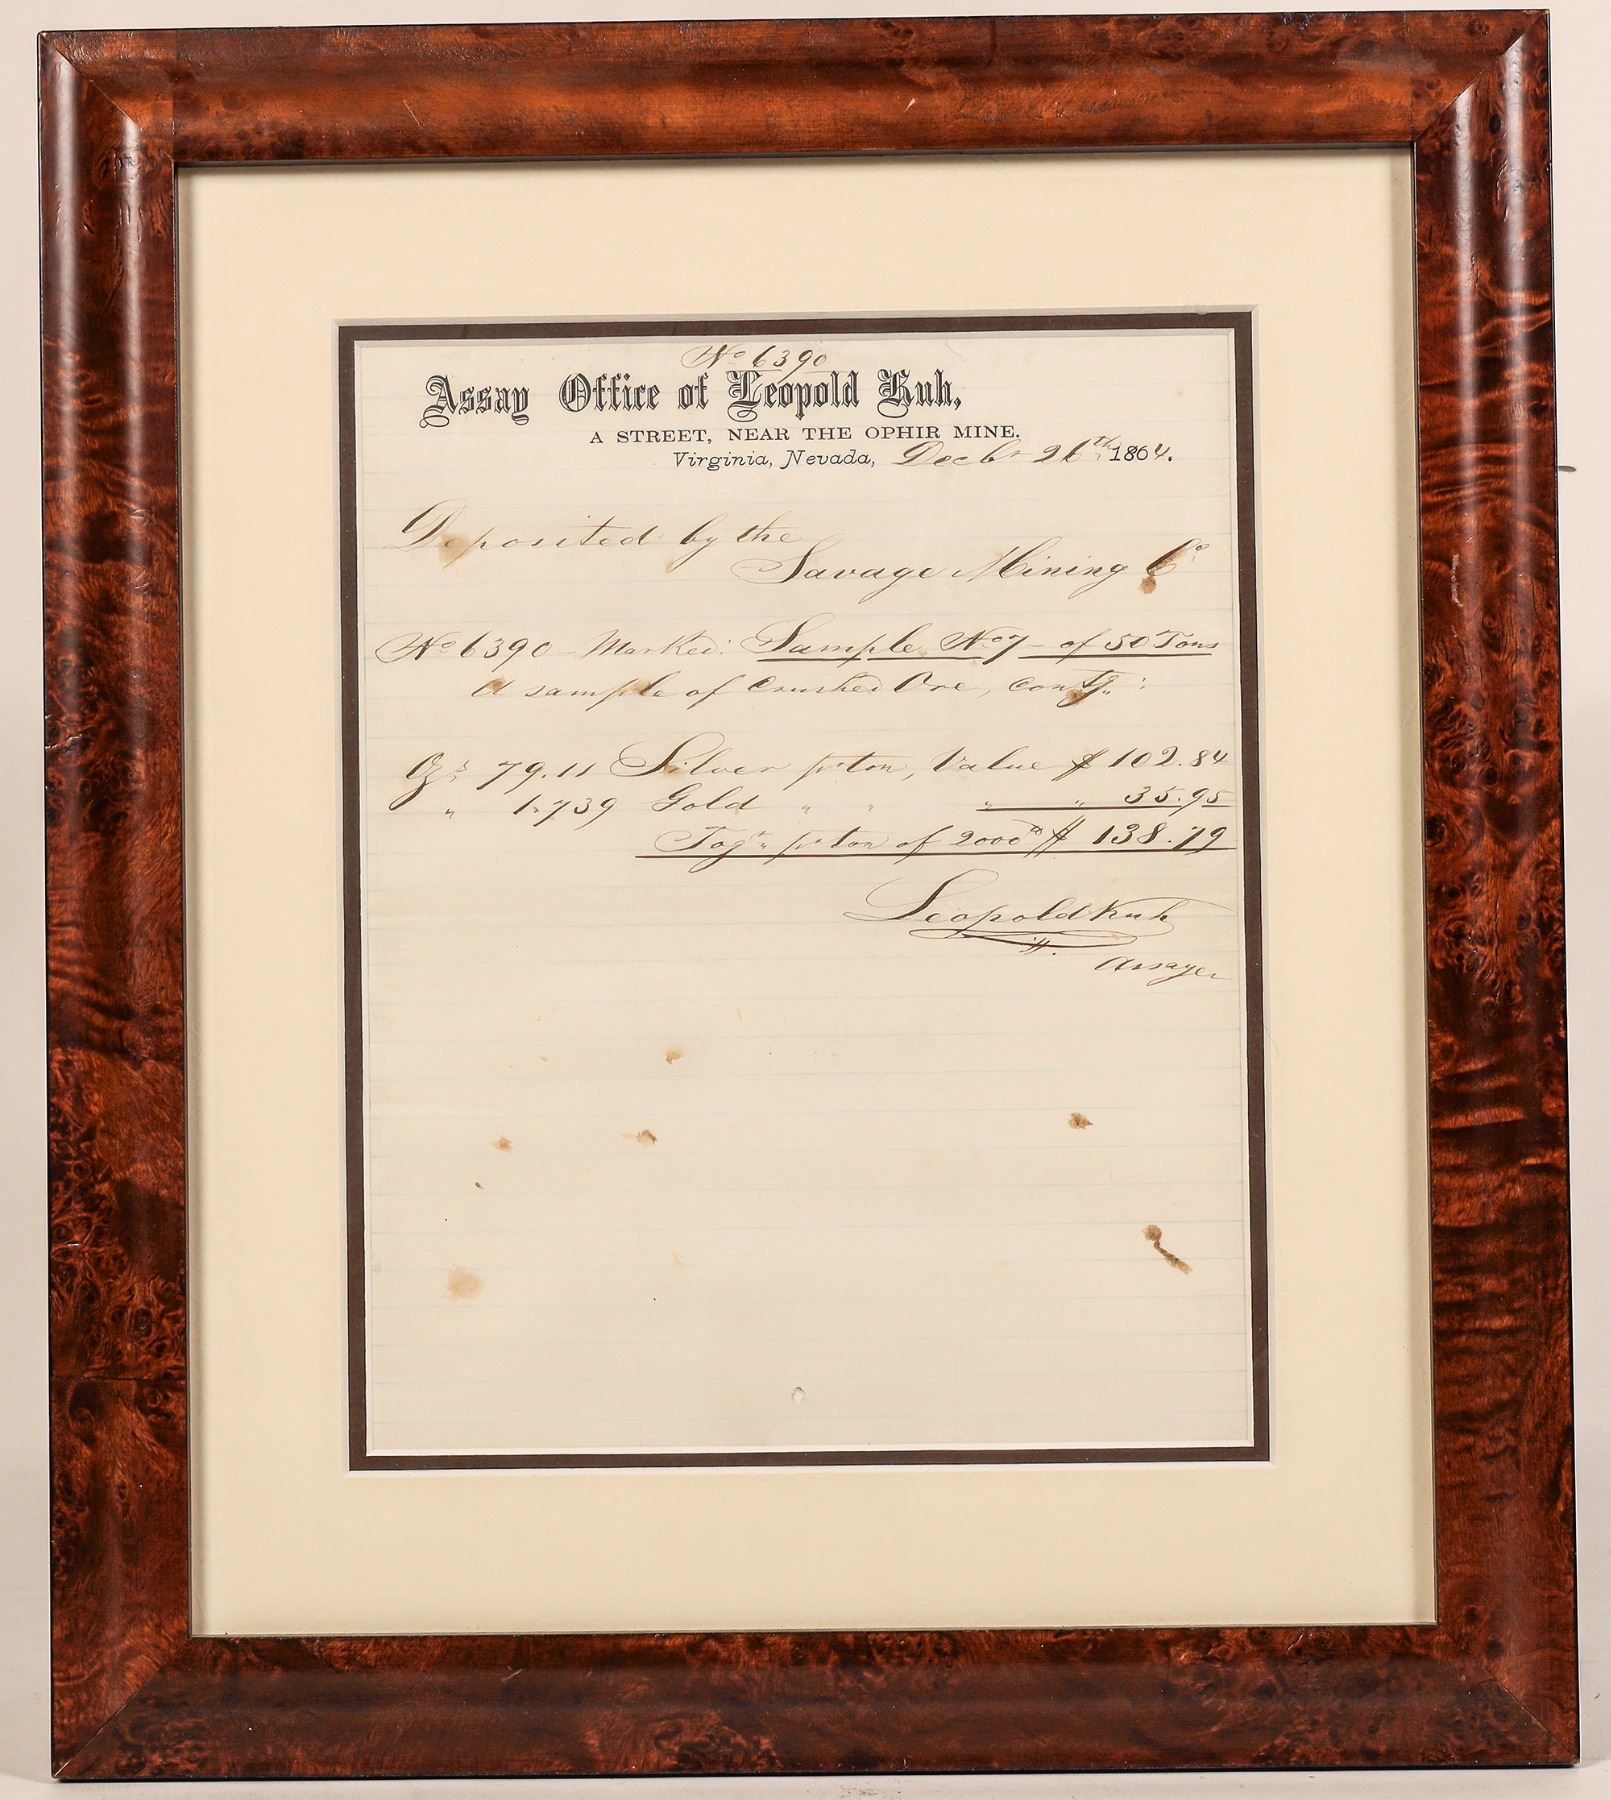 No 6390
Assay Office of Leopold Kuh,
A STREET, NEAR THE OPHIR MINE.
Virginia, Nevada, Decbr 26th 1864.
Deposited by the
Savage Mining Co
No 6390 - Marked: Sample No 7 - of 50 Tons
A sample of Crushed Ore, contg:
Ozs 79.11 Silver pr ton, Value $ 102.84
" 1.739 Gold " " " " 35.95
Togr pr ton of 2000 lb $ 138.79
Leopold Kuh
Assayer